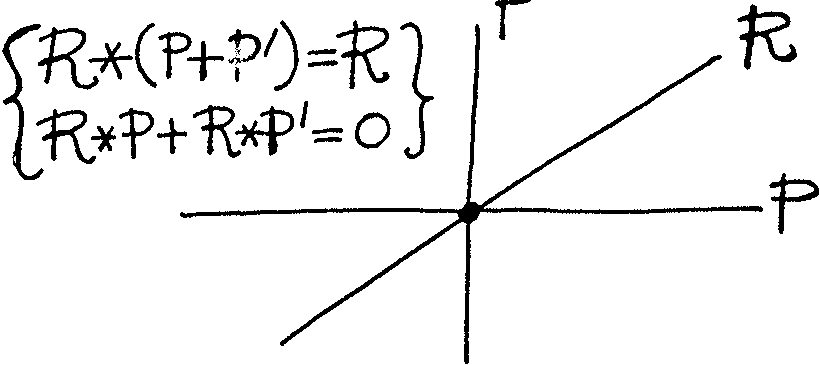 R*(P+P')=R
R*P+R*P'=0
R
P